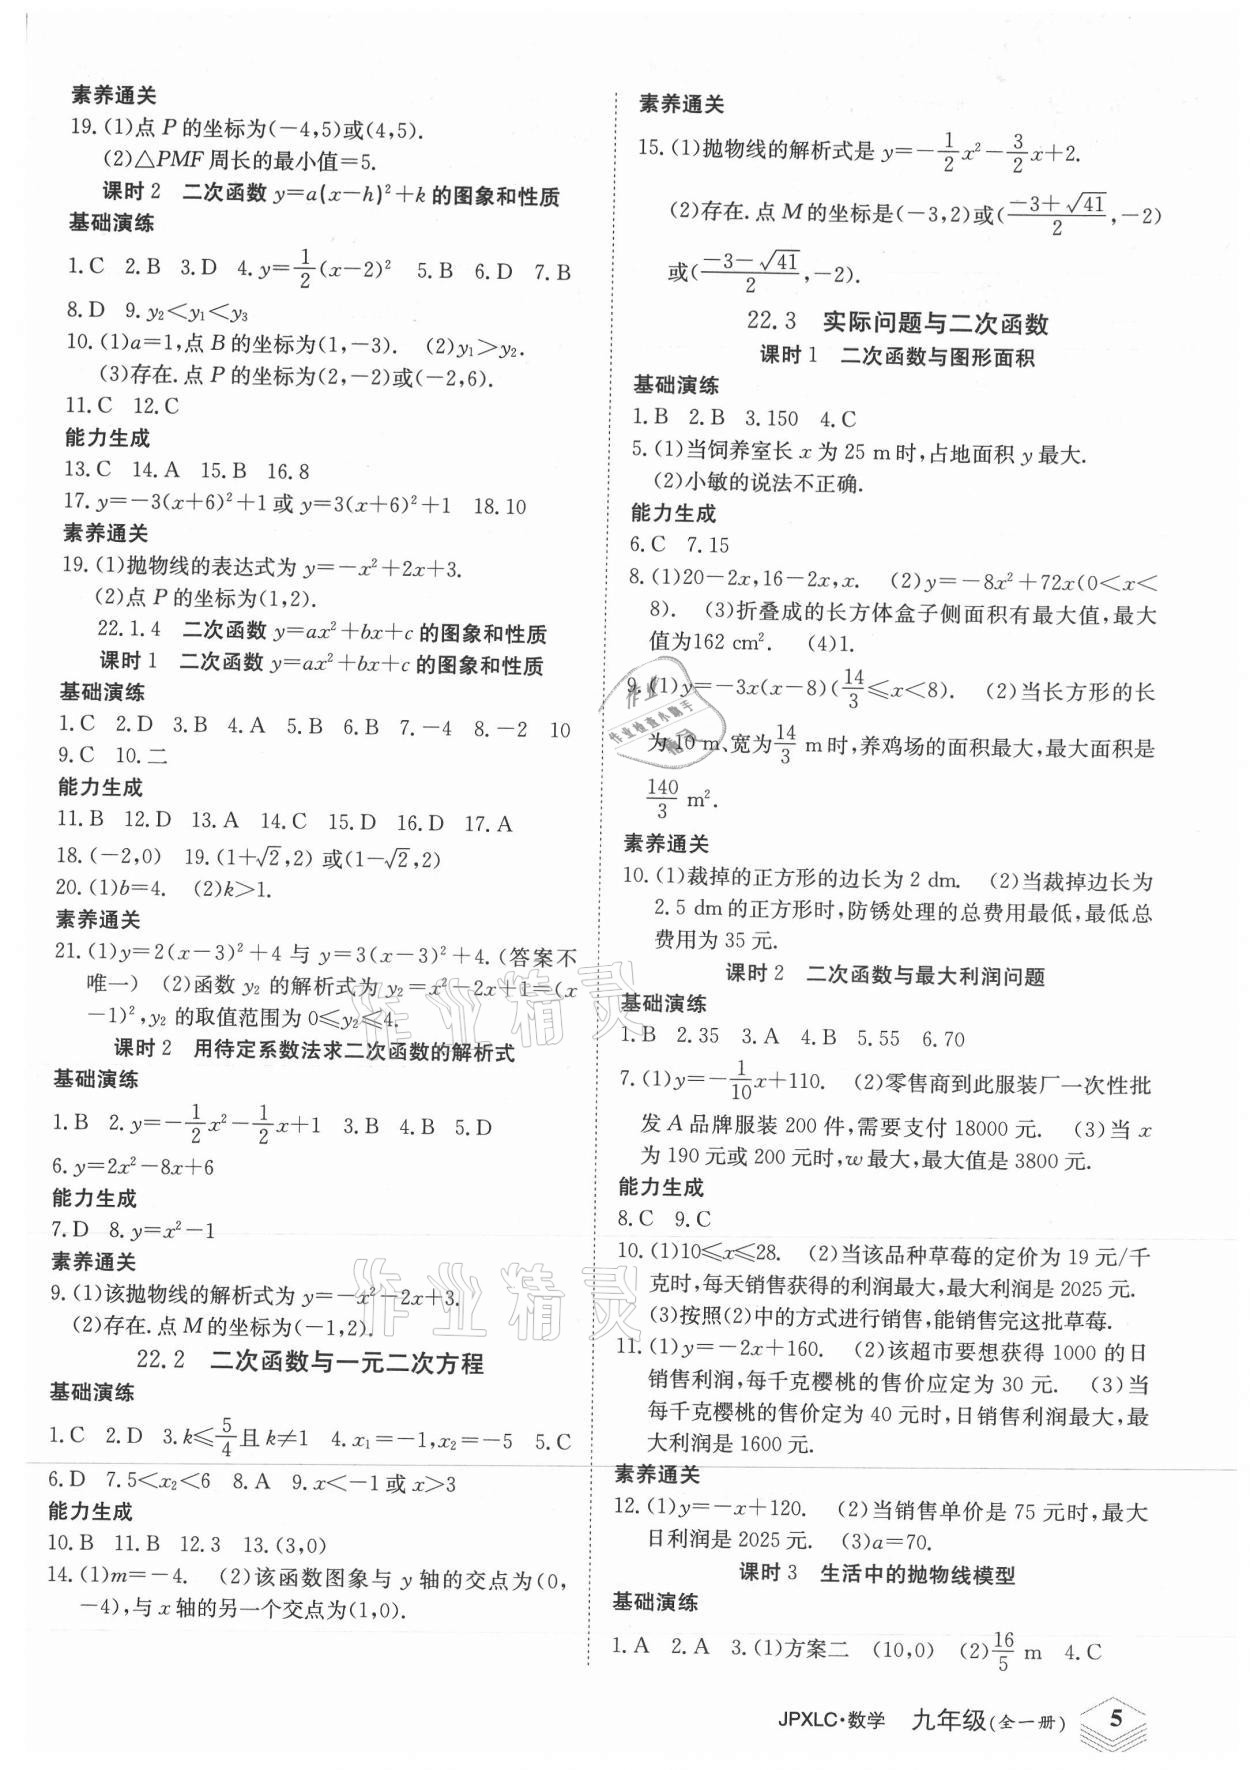 素养通关
19.(1)点 P 的坐标为(-4,5)或(4,5).
(2)△PMF 周长的最小值=5.
课时2 二次函数 y=a(x-h)²+k 的图象和性质
基础演练
1.C 2.B 3.D 4.y=1/2(x-2)² 5.B 6.D 7.B
8.D 9.y₂<y₁<y₃
10.(1)a=1,点 B 的坐标为(1,-3). (2)y₁>y₂.
(3)存在.点 P 的坐标为(2,-2)或(-2,6).
11.C 12.C
能力生成
13.C 14.A 15.B 16.8
17.y=-3(x+6)²+1 或 y=3(x+6)²+1 18.10
素养通关
19.(1)抛物线的表达式为 y=-x²+2x+3.
(2)点 P 的坐标为(1,2).
22.1.4 二次函数 y=ax²+bx+c 的图象和性质
课时1 二次函数 y=ax²+bx+c 的图象和性质
基础演练
1.C 2.D 3.B 4.A 5.B 6.B 7.-4 8.-2 10
9.C 10.二
能力生成
11.B 12.D 13.A 14.C 15.D 16.D 17.A
18.(-2,0) 19.(1+√2,2) 或(1-√2,2)
20.(1)b=4. (2)k>1.
素养通关
21.(1)y=2(x-3)²+4 与 y=3(x-3)²+4.(答案不
唯一) (2)函数 y₂ 的解析式为 y₂=x²-2x+1=(x
-1)²,y₂ 的取值范围为 0≤y₂≤4.
课时2 用待定系数法求二次函数的解析式
基础演练
1.B 2.y=-1/2x²-1/2x+1 3.B 4.B 5.D
6.y=2x²-8x+6
能力生成
7.D 8.y=x²-1
素养通关
9.(1)该抛物线的解析式为 y=-x²-2x+3.
(2)存在.点 M 的坐标为(-1,2).
22.2 二次函数与一元二次方程
基础演练
1.C 2.D 3.k≤5/4且 k≠1 4.x₁=-1,x₂=-5 5.C
6.D 7.5<x₂<6 8.A 9.x<-1 或 x>3
能力生成
10.B 11.B 12.3 13.(3,0)
14.(1)m=-4. (2)该函数图象与 y 轴的交点为(0,
-4),与 x 轴的另一个交点为(1,0).
素养通关
15.(1)抛物线的解析式是 y=-1/2x²-3/2x+2.
(2)存在.点 M 的坐标是(-3,2)或((-3+√41)/2,-2)
或((-3-√41)/2,-2).
22.3 实际问题与二次函数
课时1 二次函数与图形面积
基础演练
1.B 2.B 3.150 4.C
5.(1)当饲养室长 x 为 25 m时,占地面积 y 最大.
(2)小敏的说法不正确.
能力生成
6.C 7.15
8.(1)20-2x,16-2x,x. (2)y=-8x²+72x(0<x<
8). (3)折叠成的长方体盒子侧面积有最大值,最大
值为162 cm². (4)1.
9.(1)y=-3x(x-8)(14/3≤x<8). (2)当长方形的长
为10 m、宽为14/3 m时,养鸡场的面积最大,最大面积是
140/3 m².
素养通关
10.(1)裁掉的正方形的边长为 2 dm. (2)当裁掉边长为
2.5 dm的正方形时,防锈处理的总费用最低,最低总
费用为 35 元.
课时2 二次函数与最大利润问题
基础演练
1.B 2.35 3.A 4.B 5.55 6.70
7.(1)y=-1/10x+110. (2)零售商到此服装厂一次性批
发 A 品牌服装 200 件,需要支付 18000 元. (3)当 x
为 190 元或 200 元时,w 最大,最大值是 3800 元.
能力生成
8.C 9.C
10.(1)10≤x≤28. (2)当该品种草莓的定价为 19 元/千
克时,每天销售获得的利润最大,最大利润是 2025 元.
(3)按照(2)中的方式进行销售,能销售完这批草莓.
11.(1)y=-2x+160. (2)该超市要想获得 1000 的日
销售利润,每千克樱桃的售价应定为 30 元. (3)当
每千克樱桃的售价定为 40 元时,日销售利润最大,最
大利润是 1600 元.
素养通关
12.(1)y=-x+120. (2)当销售单价是 75 元时,最大
日利润是 2025 元. (3)a=70.
课时3 生活中的抛物线模型
基础演练
1.A 2.A 3.(1)方案二 (10,0) (2)16/5 m 4.C
JPXLC·数学 九年级(全一册) 5
作业精灵
作业精灵
作业
作业检查小助手
精灵